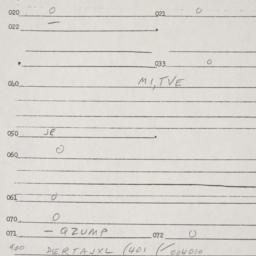 020 0 021 0
022 —
033 0
040 MI, TVE
050 JE
060 0
061 0
070 0
071 - GZUMP 072 0